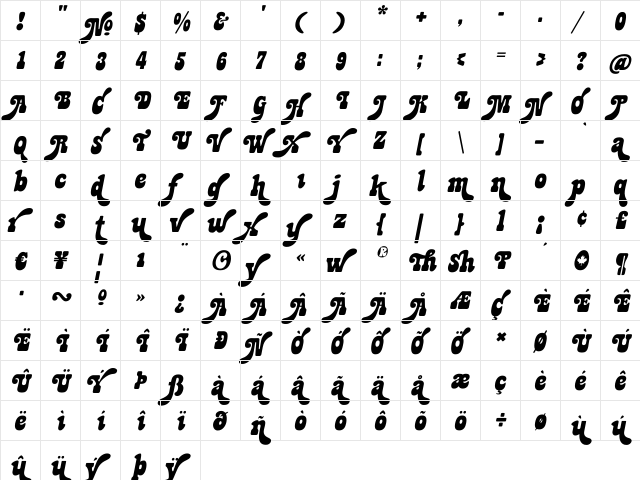 ! " № $ % & ' ( ) * + , - . / 0
1 2 3 4 5 6 7 8 9 : ; < = > ? @
A B C D E F G H I J K L M N O P
Q R S T U V W X Y Z [ \ ] – ` a
b c d e f g h i j k l m n o p q
r s t u v w x y z { | } l ¡ ¢ £
€ ¥ ¦ ı ¨ © y « w ® Th Sh P ´ ¶
· ~ º » ¿ À Á Â Ã Ä Å Æ Ç È É Ê
Ë Ì Í Î Ï Ð Ñ Ò Ó Ô Õ Ö × Ø Ù Ú
Û Ü Ý Þ ß à á â ã ä å æ ç è é ê
ë ì í î ï ð ñ ò ó ô õ ö ÷ ø ù ú
û ü ý þ ÿ